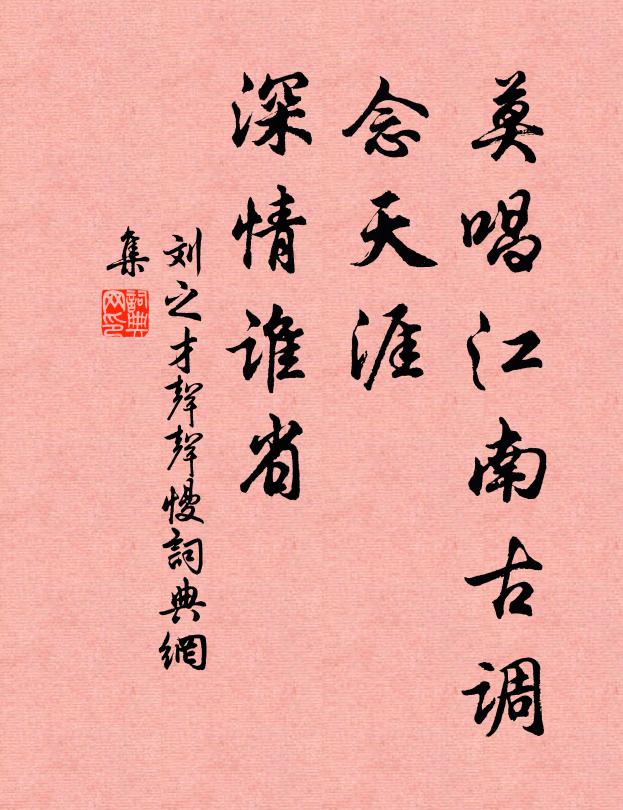 莫唱江南古调
念天涯
深情谁省
刘之才聲聲慢詞典網
集
詞典
网印